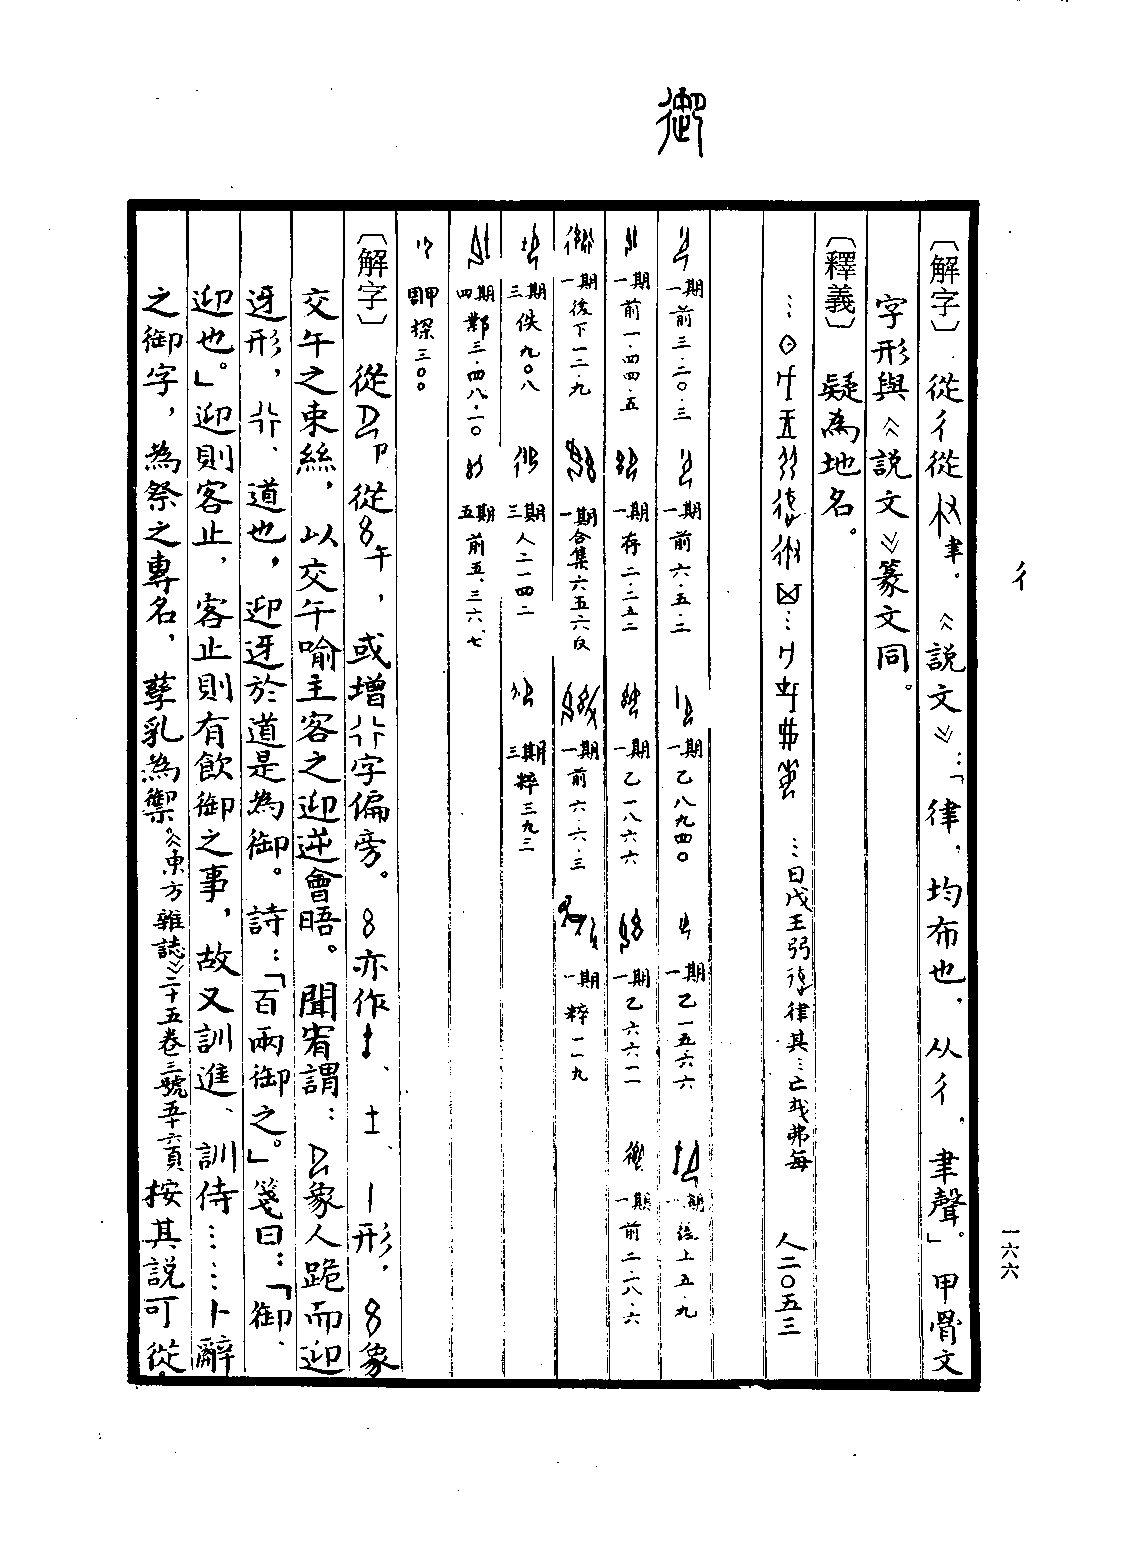 御
彳
一六六
〔解字〕從彳從聿。《說文》：「律，均布也，从彳，聿聲。」甲骨文
字形與《說文》篆文同。
〔釋義〕疑為地名。
…日戊王弜律其…亡𢦔弗每 人二〇五三
一期前三·二〇·三 一期前六·五·二 一期乙八九四〇 一期乙一五六六 一期後上五·九
一期前一·四四·五 一期存二·二五二 一期乙一八六六 一期乙六六一一 一期前二·一八·六
一期後下一二·九 一期合集六五六反 一期前六·六·三 一期粹一一九
三期佚九〇八 三期人二一四二 三期粹三九三
四期鄴三·四八·一〇 五期前五·三六·七
周甲探三〇〇
〔解字〕從卩從午，或增行字偏旁。亦作、、形，象
交午之束絲，以交午喻主客之迎逆會晤。聞宥謂：象人跪而迎
迓形，行，道也，迎迓於道是為御。詩：「百兩御之。」箋曰：「御，
迎也。」迎則客止，客止則有飲御之事，故又訓進、訓侍……卜辭
之御字，為祭之專名，孳乳為禦。《東方雜誌》二十五卷三號五十六頁 按其說可從。